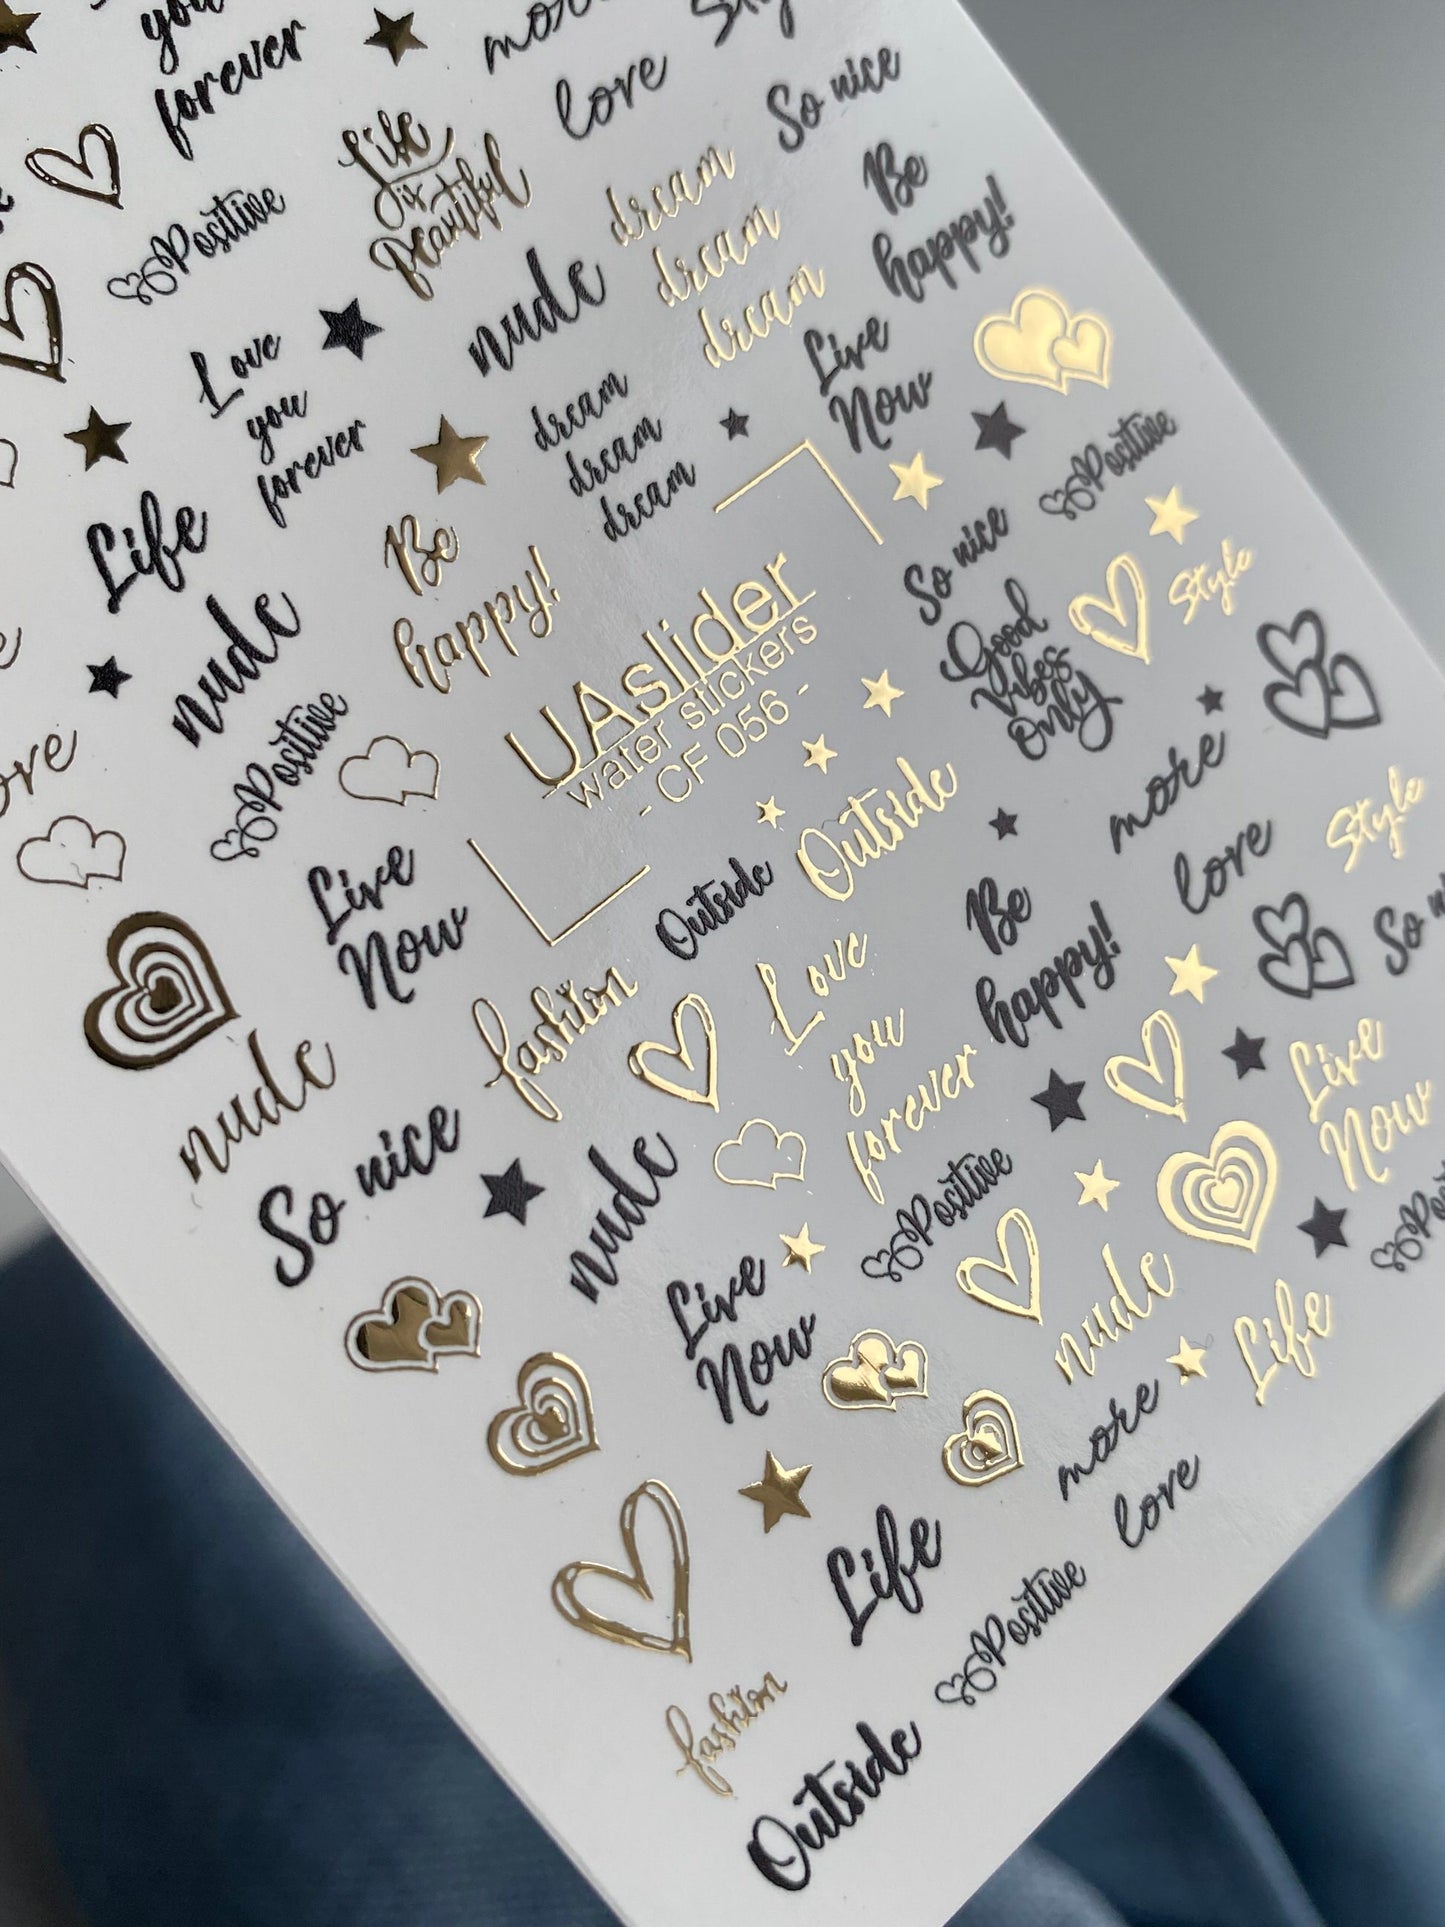 you
forever
more
love
Style
So nice
Positive
Life
is
Beautiful
nude
dream
dream
dream
Be
happy!
Love
you
forever
dream
dream
dream
Live
Now
Positive
Life
nude
Be
happy!
UAslider
water stickers
- CF 056 -
So nice
Good
Vibes
Only
Style
Positive
Live
Now
Outside
Outside
more
love
Style
nude
fashion
Love
you
forever
Be
happy!
So
Live
Now
So nice
nude
Positive
Live
Now
nude
Life
more
love
Life
Positive
fashion
Outside